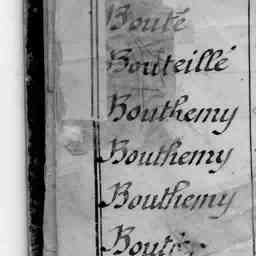 Bouté
Bouteillé
Bouthemy
Bouthemy
Bouthemy